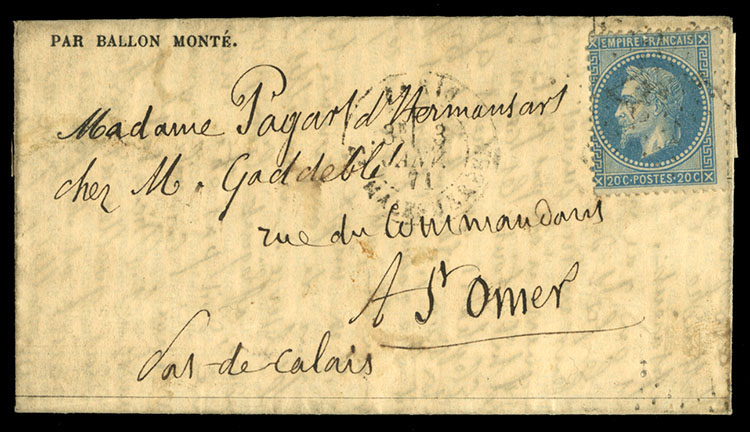 PAR BALLON MONTÉ.
EMPIRE FRANÇAIS
20C-POSTES-20C
Madame Pagart d'Hermansart
3
JANV
71
chez M. Gaddeblé
rue du Commandant
A St Omer
Pas-de-Calais